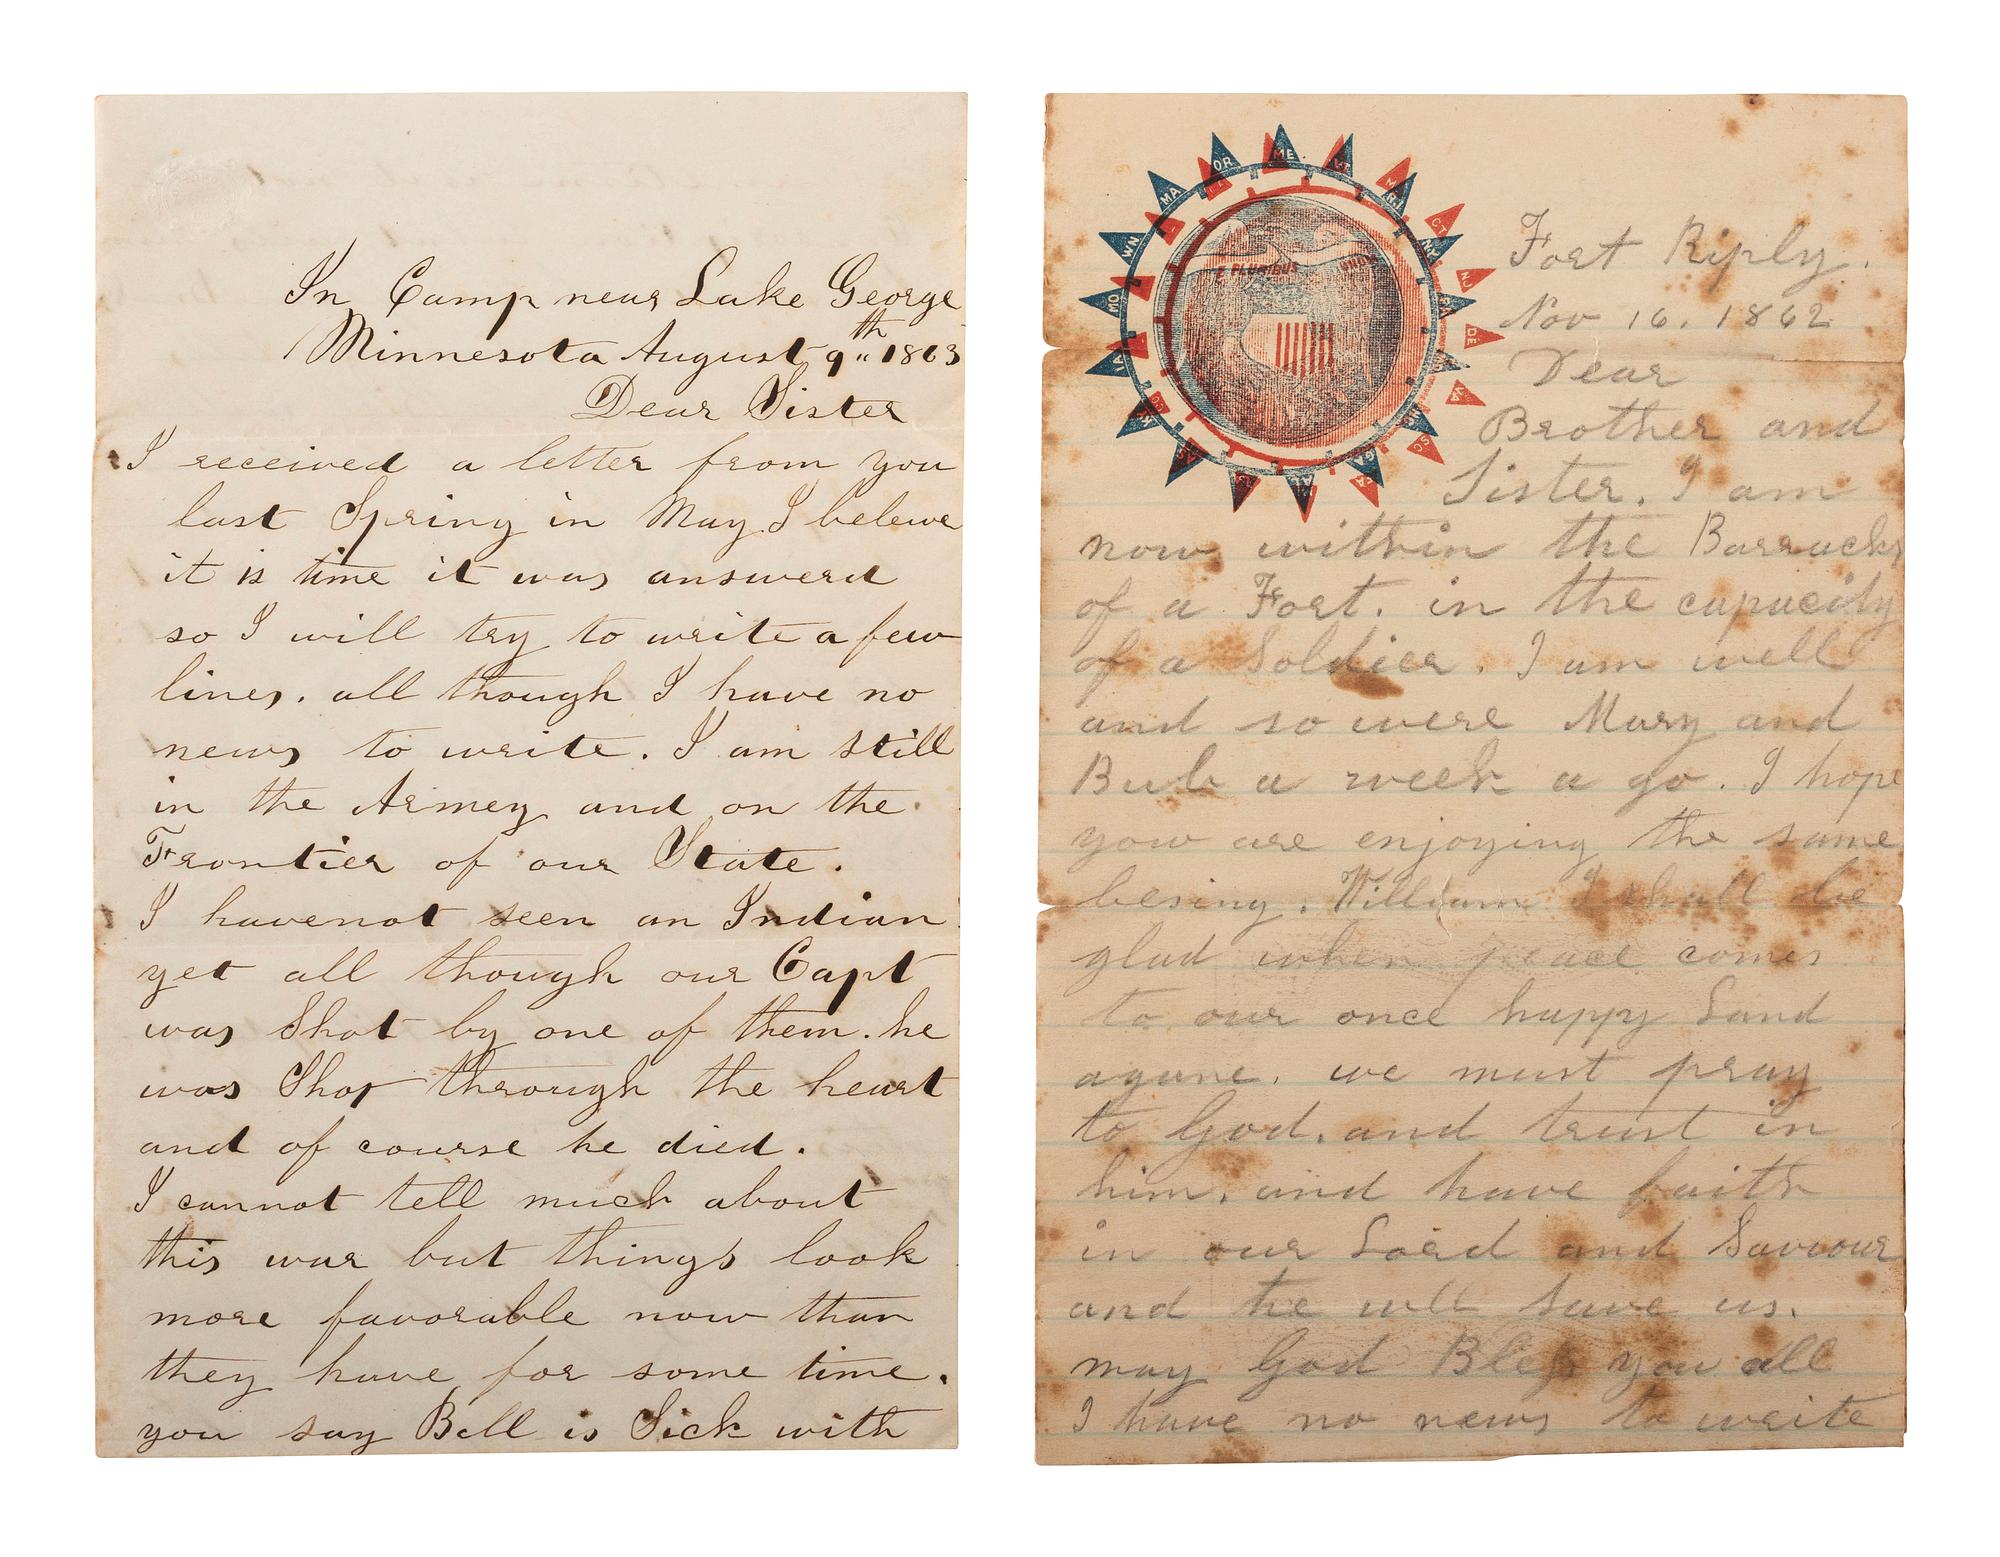 In Camp near Lake George
Minnesota August 9th 1863
Dear Sister
I received a letter from you
last Spring in May I beleive
it is time it was answerd
so I will try to write a few
lines. all though I have no
news to write. I am still
in the Armey and on the
Frontier of our State.
I have not seen an Indian
yet all though our Capt
was Shot by one of them. he
was Shot through the heart
and of course he died.
I cannot tell much about
this war but things look
more favorable now than
they have for some time.
you say Bell is Sick with
OR ME. VT
MA
WN
MO
R.I
CT
NJ
DE
VA
SC
E PLURIBUS UNUM
Fort Riply.
Nov 16. 1862
Dear
Brother and
Sister. I am
now within the Barracks
of a Fort. in the capacity
of a Soldier. I am well
and so were Mary and
Bub a week a go. I hope
you are enjoying the same
besing. William I shall be
glad when peace comes
to our once happy Land
agane. we must pray
to God. and trust in
him. and have faith
in our Lord and Saviour
and he will save us.
may God Bless you all
I have no news to write